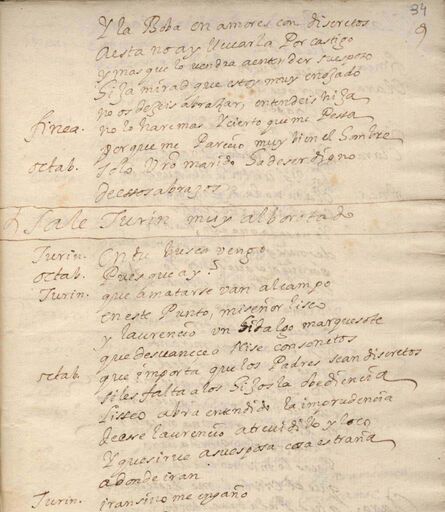 34
9
Y la Boba en amores con discretos
Aesta no ay llevarla Por castigo
y mas que lo vendra aentender su esposo
hija mirad que estoy muy enojado
no os dejeis abrazar, entendeis hija
finea. no lo hare mas Y cierto que me Pessa
porque me Parecio muy bien el hombre
octab. solo Vro marido ha de ser digno
de essos abrazos
Sale Turin muy alborotado
Turin. En tu busca vengo
octab. Pues que ay?
Turin. que a matarse van al campo
en este Punto, mi señor liseo
y laurencio un hidalgo marquesote
que desvanece a Nise con sonetos
octab. que importa que los Padres sean discretos
si les falta a los hijos la obediencia
liseo abra entendido la imprudencia
de esse laurencio atrevidillo y loco
Y que sirve a su esposa cosa estraña
a donde iran
Turin. iran si no me engaño